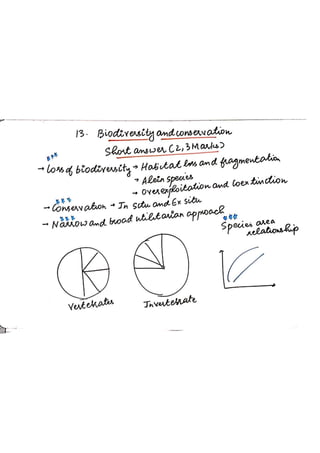 13. Biodiversity and conservation
Short answer (2,3 Marks)
*** → Loss of biodiversity → Habitat loss and fragmentation
→ Alein species
→ Overexploitation and Coextinction
*** → Conservation → In situ and Ex situ
*** → Narrow and broad utilitarian approach
*** Species area
relationship
Vertebrates
Invertebrate